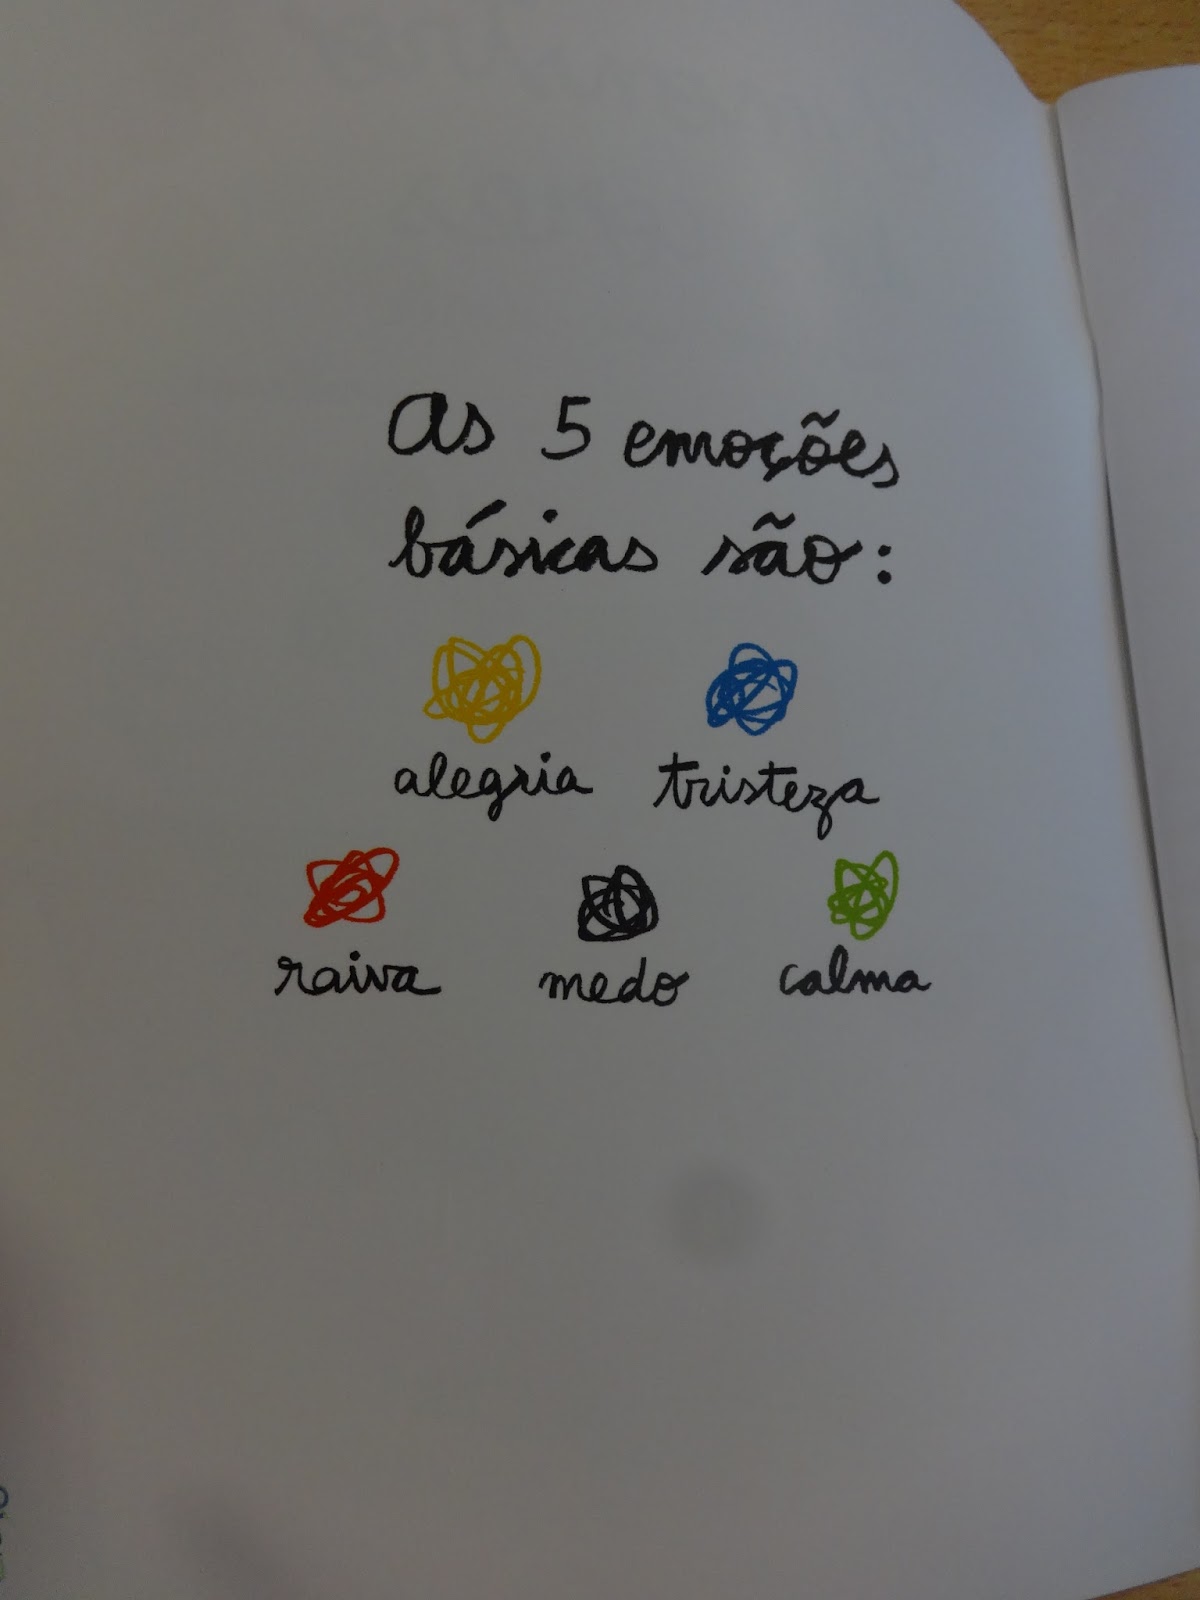 As 5 emoções
básicas são:
alegria tristeza
raiva medo calma